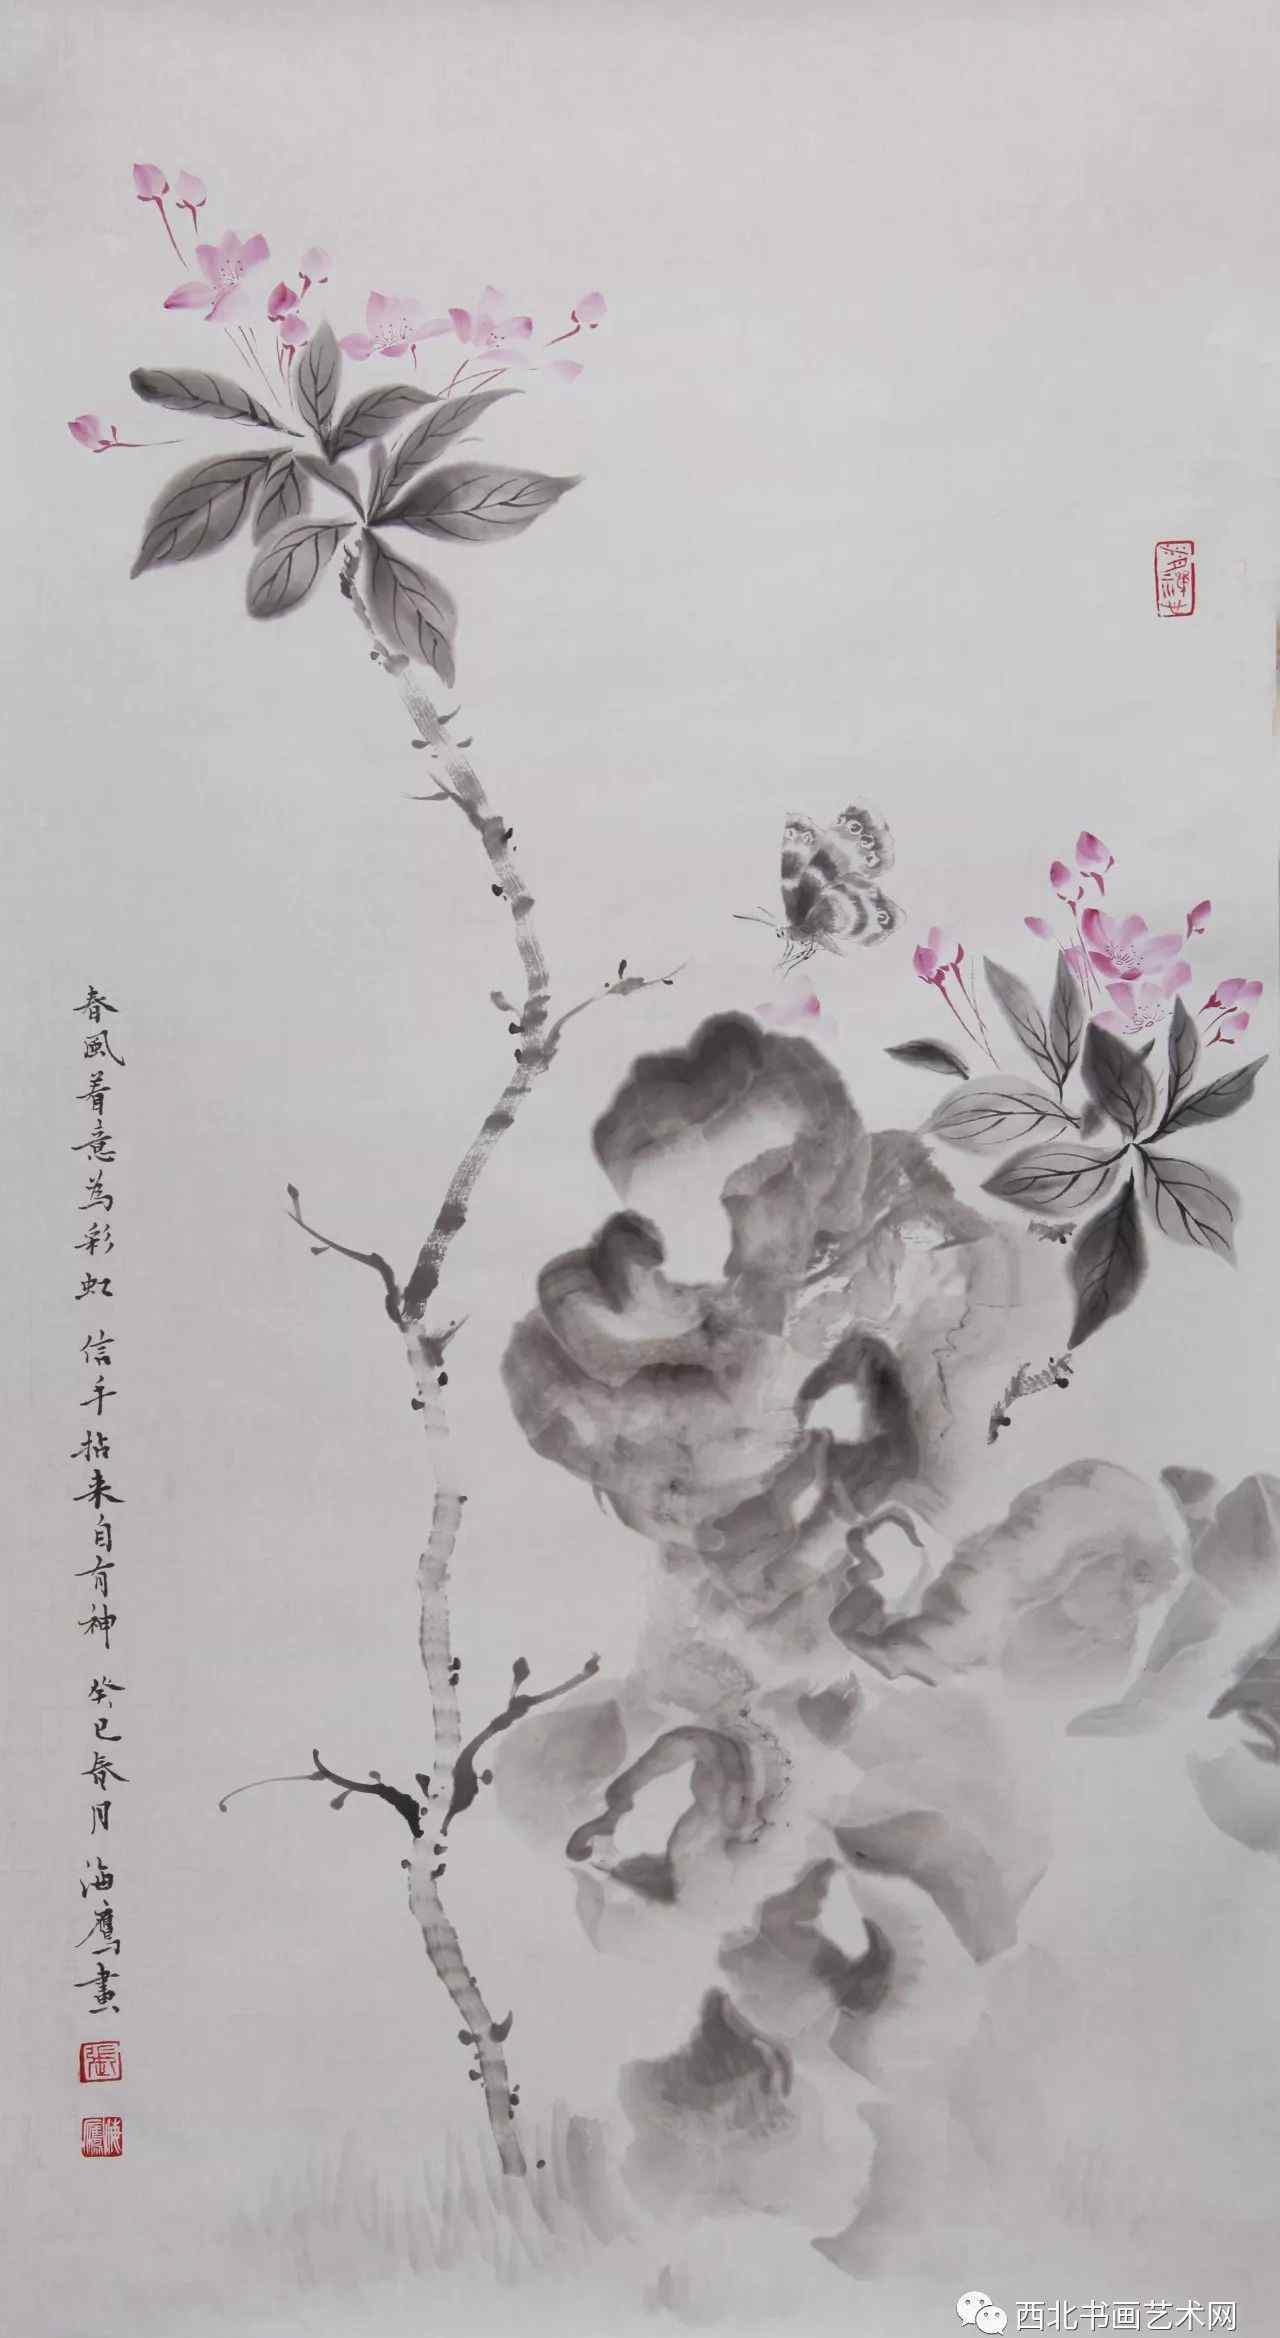 春風着意為彩虹 信手拈来自有神 癸巳春月 海鹰畫
張
海鷹
西北书画艺术网